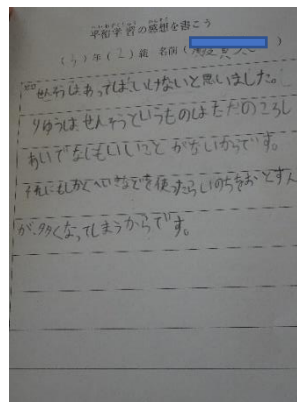 平和学習の感想を書こう
(3)年(2)組 名前( )
せんそうはあってはいけないと思いました。
りゆうはせんそうというものはただのころし
あいでなにもいいことがないからです。
にもしかくへいきなどを使ったらいのちをおとす人
が、多くなってしまうからです。